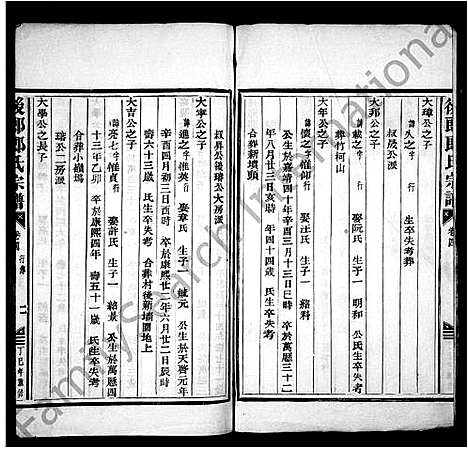 後郎郎氏宗譜 卷四
大璋公之子
諱久之字惟 行 生卒失考葬
叔茂公派
大邦公之子
諱載之字惟 行 娶阮氏 生子一 明和 公氏生卒失考
葬竹柯山
大年公之子
諱 之字惟 行 娶汪氏 生子一 紹科
公生於嘉靖四十年辛酉三月十三日巳時 卒於萬歷三十二
年八月廿三日亥時 年四十四歲 氏生卒失考
合葬新墳頭
叔昇公後瑋公大房派
大寧公之子
諱進之字惟英行 娶章氏 生子一 斌元 公生於天啓元年
辛酉四月初三日酉時 卒於康熙廿二年六月廿二日辰時
壽六十三歲 氏生卒失考 合葬村後新墳園地上
大吉公之子
諱亮七字惟貞行 娶許氏 生子一 紹景 公生於萬歷四
十三年乙卯 卒於康熙四年 壽五十一歲 氏生卒失考
合葬小嶺塢
瑞公二房派
大學公之長子
後郎郎氏宗譜 卷四 行傳 二 丁巳年重修
FamilySearch International